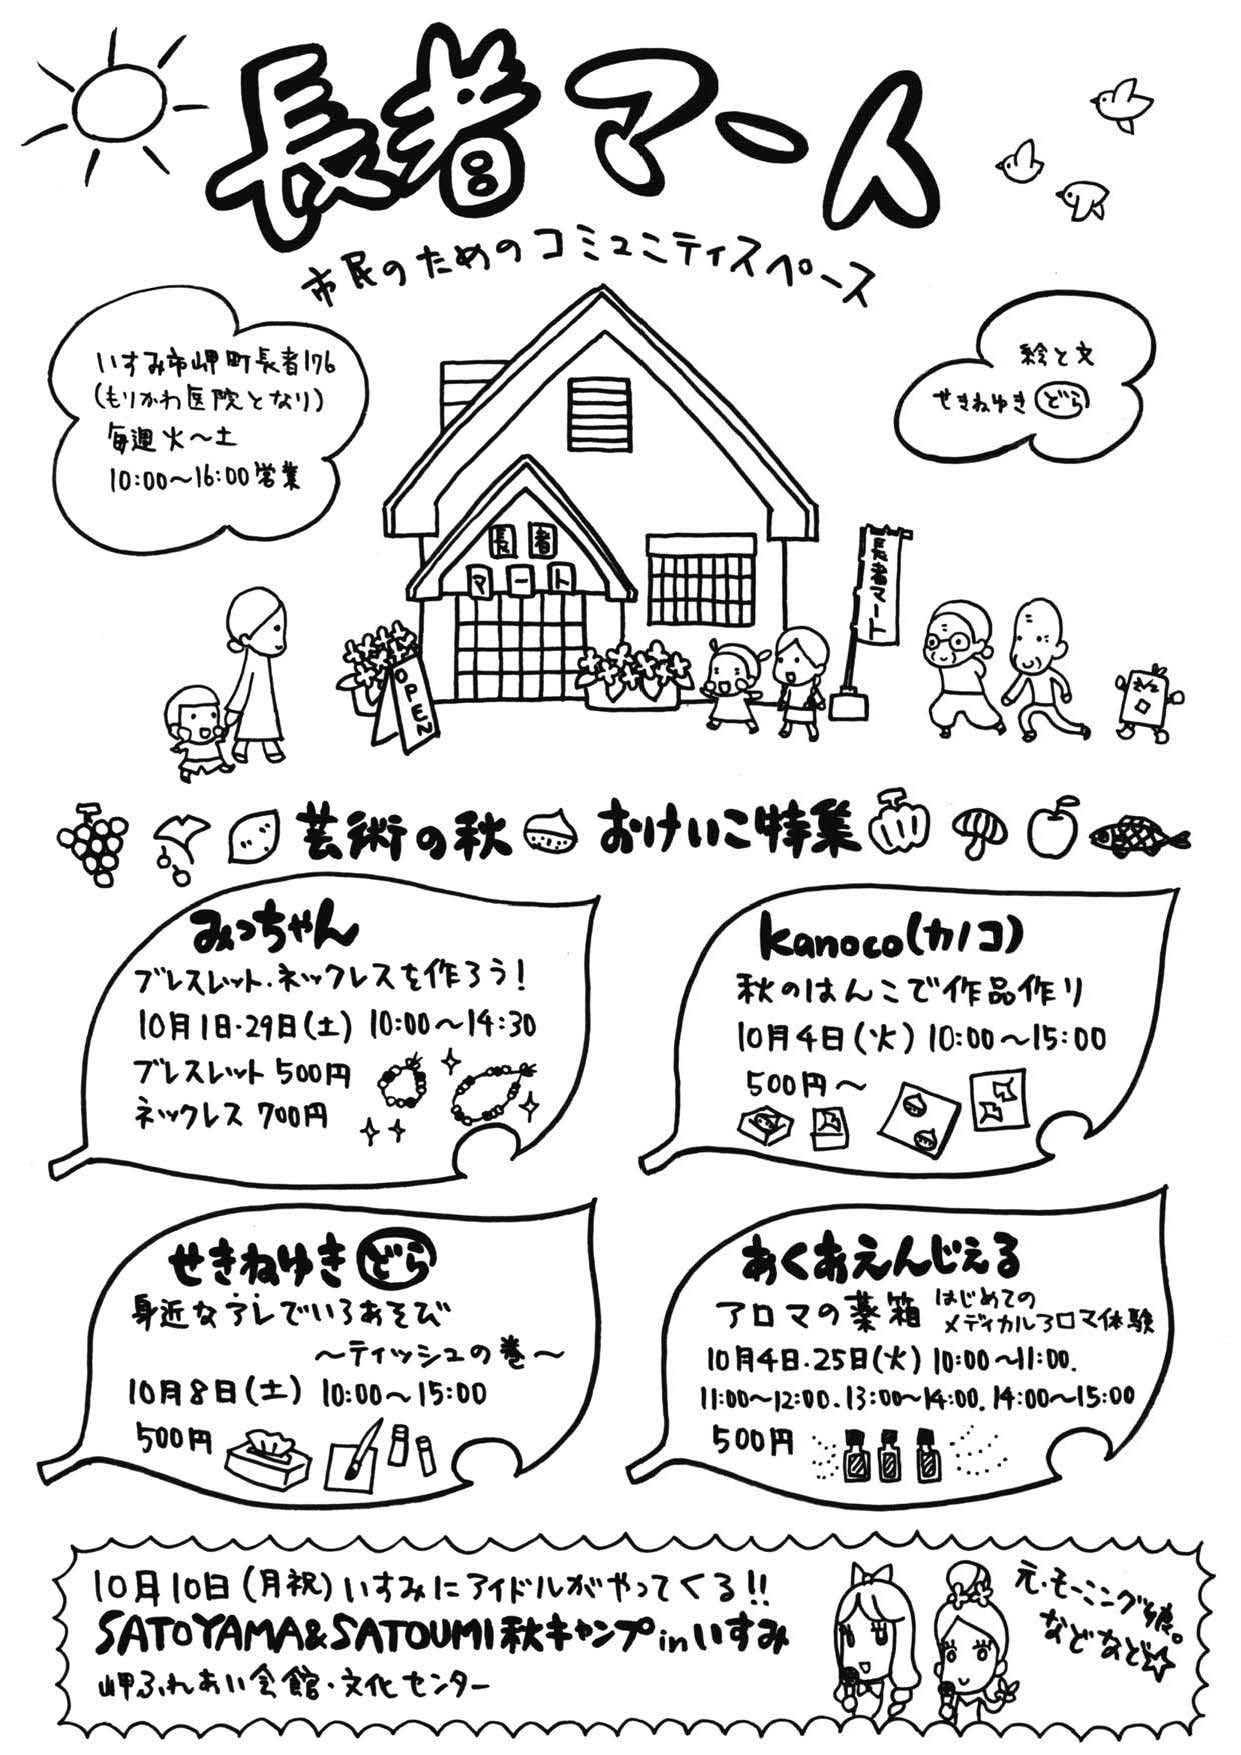 長者マート
市民のためのコミュニティスペース
いすみ市岬町長者176
(もりかわ医院となり)
毎週火〜土
10:00〜16:00営業
絵と文
せきねゆきどら
長者
マート
長者マート
OPEN
芸術の秋 おけいこ特集
みっちゃん
ブレスレット・ネックレスを作ろう!
10月1日・29日(土) 10:00〜14:30
ブレスレット 500円
ネックレス 700円
kanoco(カノコ)
秋のはんこで作品作り
10月4日(火) 10:00〜15:00
500円〜
せきねゆきどら
身近なアレでいろあそび
〜ティッシュの巻〜
10月8日(土) 10:00〜15:00
500円
あくあえんじぇる
アロマの薬箱 はじめての
メディカルアロマ体験
10月4日・25日(火) 10:00〜11:00.
11:00〜12:00.13:00〜14:00.14:00〜15:00
500円
10月10日(月祝)いすみにアイドルがやってくる!!
SATOYAMA&SATOUMI秋キャンプinいすみ
岬ふれあい会館・文化センター
元・モーニング娘。
などなど☆